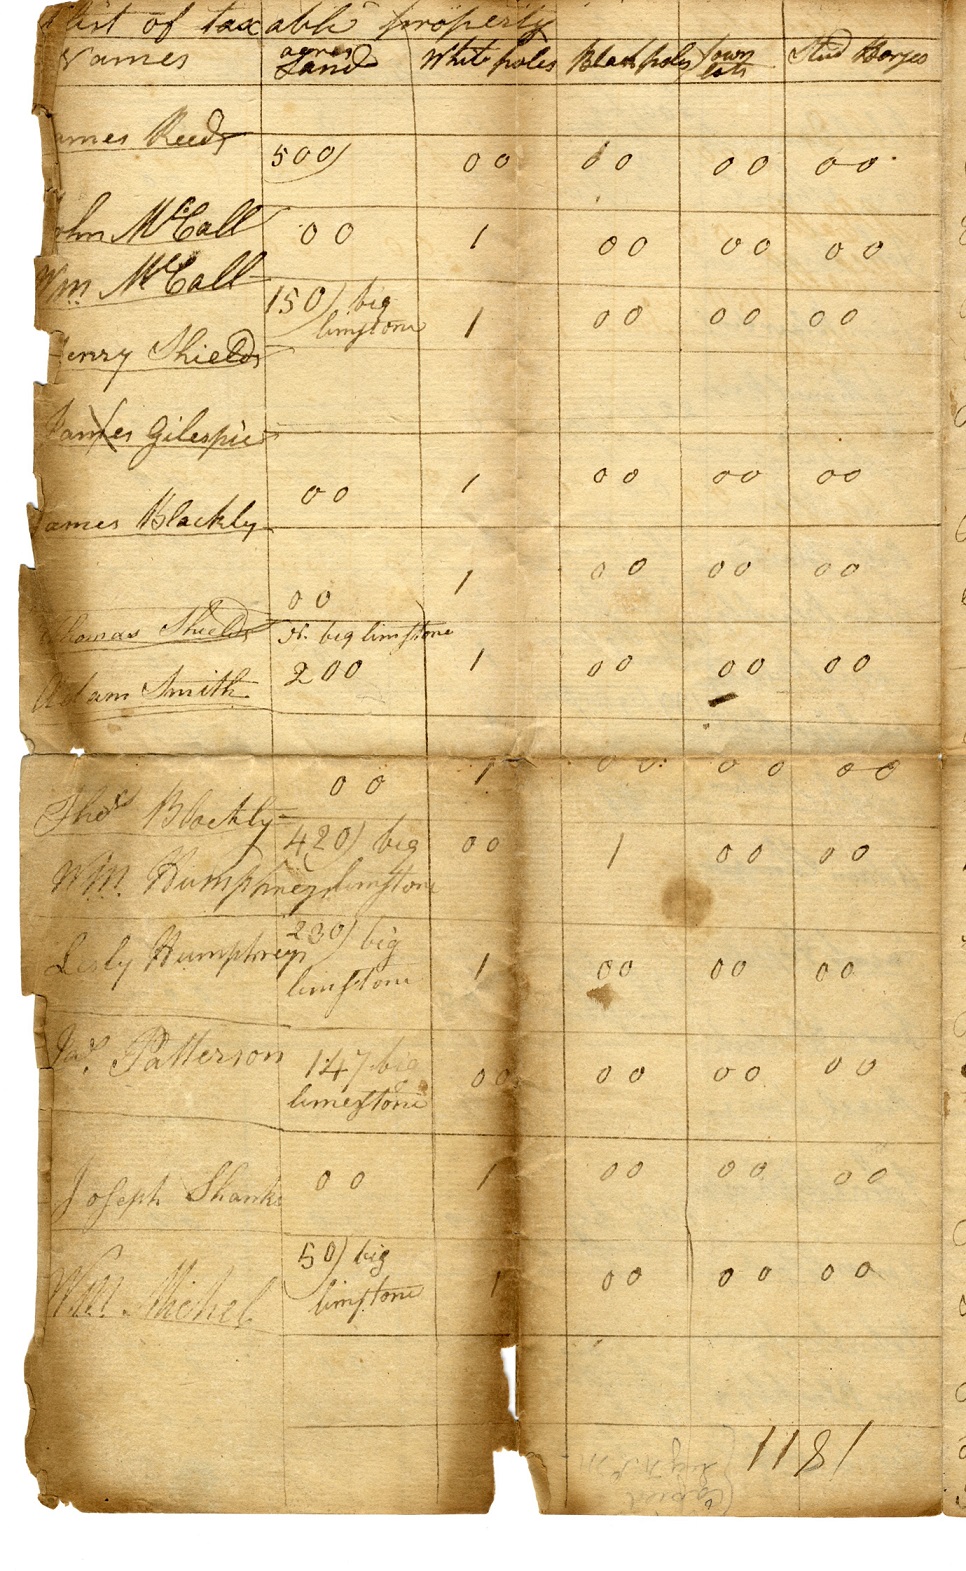 list of taxable property
Names acres Land White poles Black poles Town lots Stud Horses
James Reed 500) 00 00 00 00
John McCall 00 1 00 00 00
Wm McCall 150) big limstone 1 00 00 00
Henry Shields
James Gilespie
00 1 00 00 00
James Blackly
00 1 00 00 00
Thomas Shields
big limstone
200 1 00 00 00
Adam Smith
00 1 00 00 00
Thos Blackly
420) big limstone 00 1 00 00
Wm. Humphreys
230) big limstone 1 00 00 00
Lesly Humphreys
Jas. Patterson 147 big limestone 00 00 00 00
Joseph Shanks 00 1 00 00 00
Wm. Michel 50) big limstone 1 00 00 00
1811